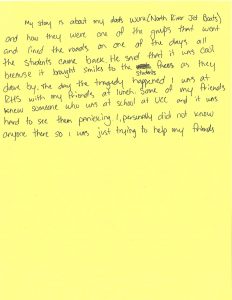 My story is about my dads work (North River Jet Boats)
and how they were one of the groups that went
and lined the roads on one of the days all
the students came back. He said that it was cool
because it brought smiles to the students faces as they
drove by. the day the tragedy happened I was at
RHS with my friends at lunch. Some of my friends
knew someone who was at school at UCC and it was
hard to see them panicking I, personally did not know
anyone there so i was just trying to help my friends